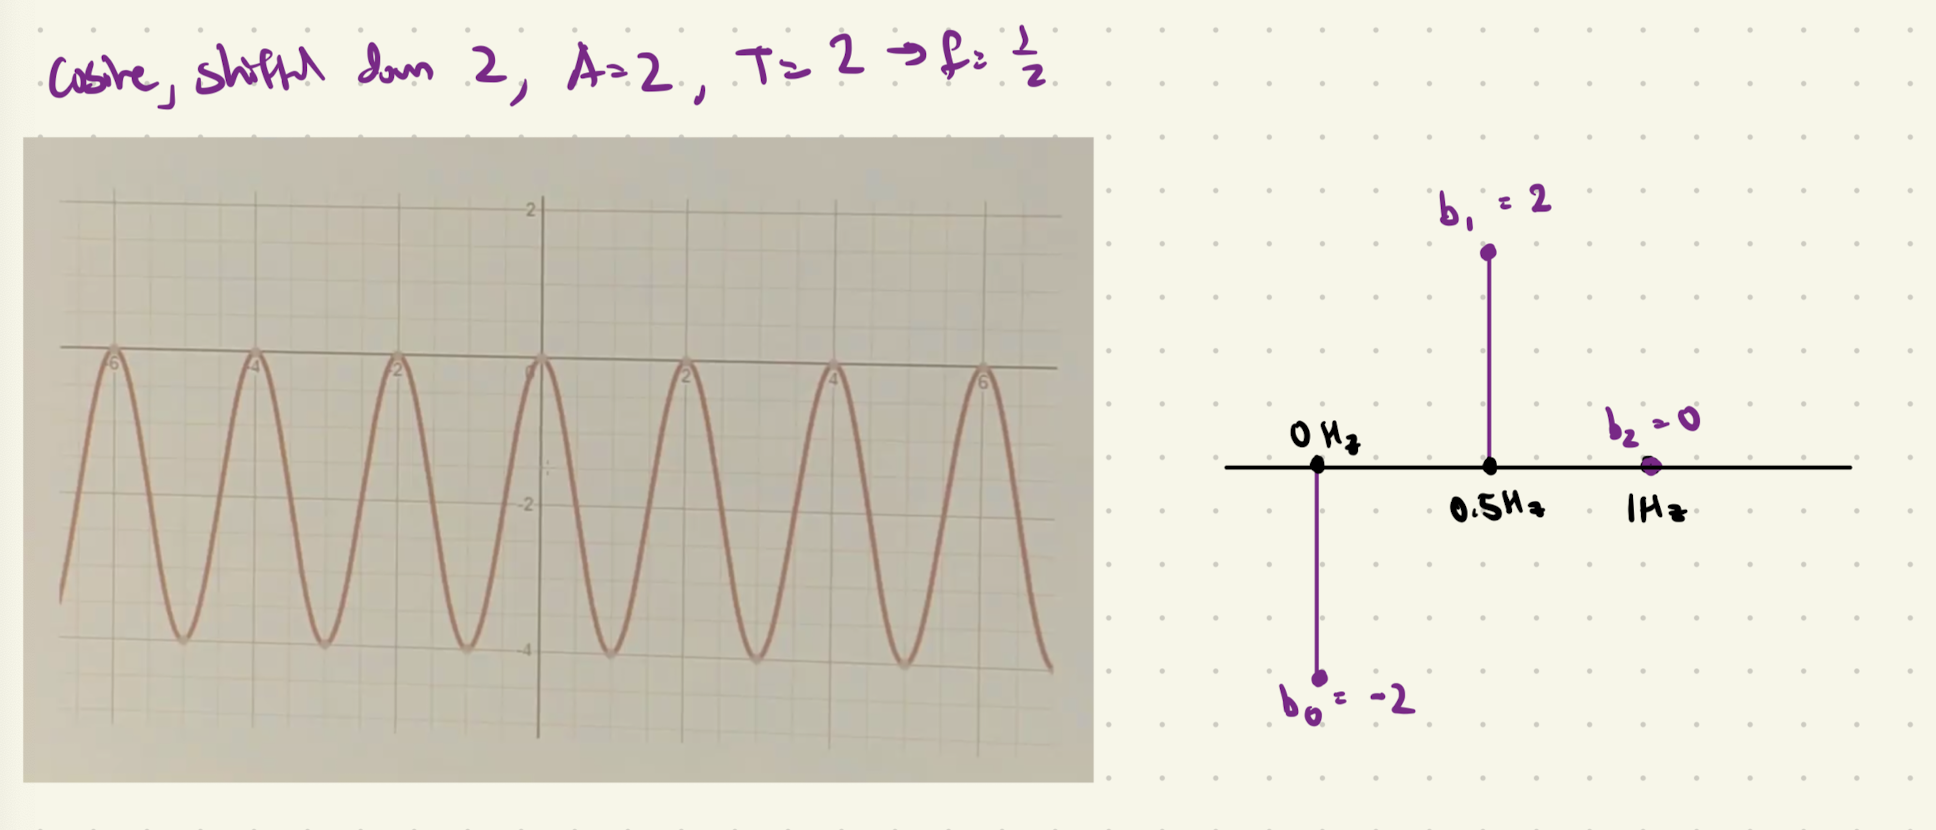 Cosine, shifted down 2, A=2, T=2 → f=1/2
2
-6 -4 -2 0 2 4 6
-2
-4
b₁ = 2
0 Hz
b₂ = 0
0.5Hz
1Hz
b₀ = -2